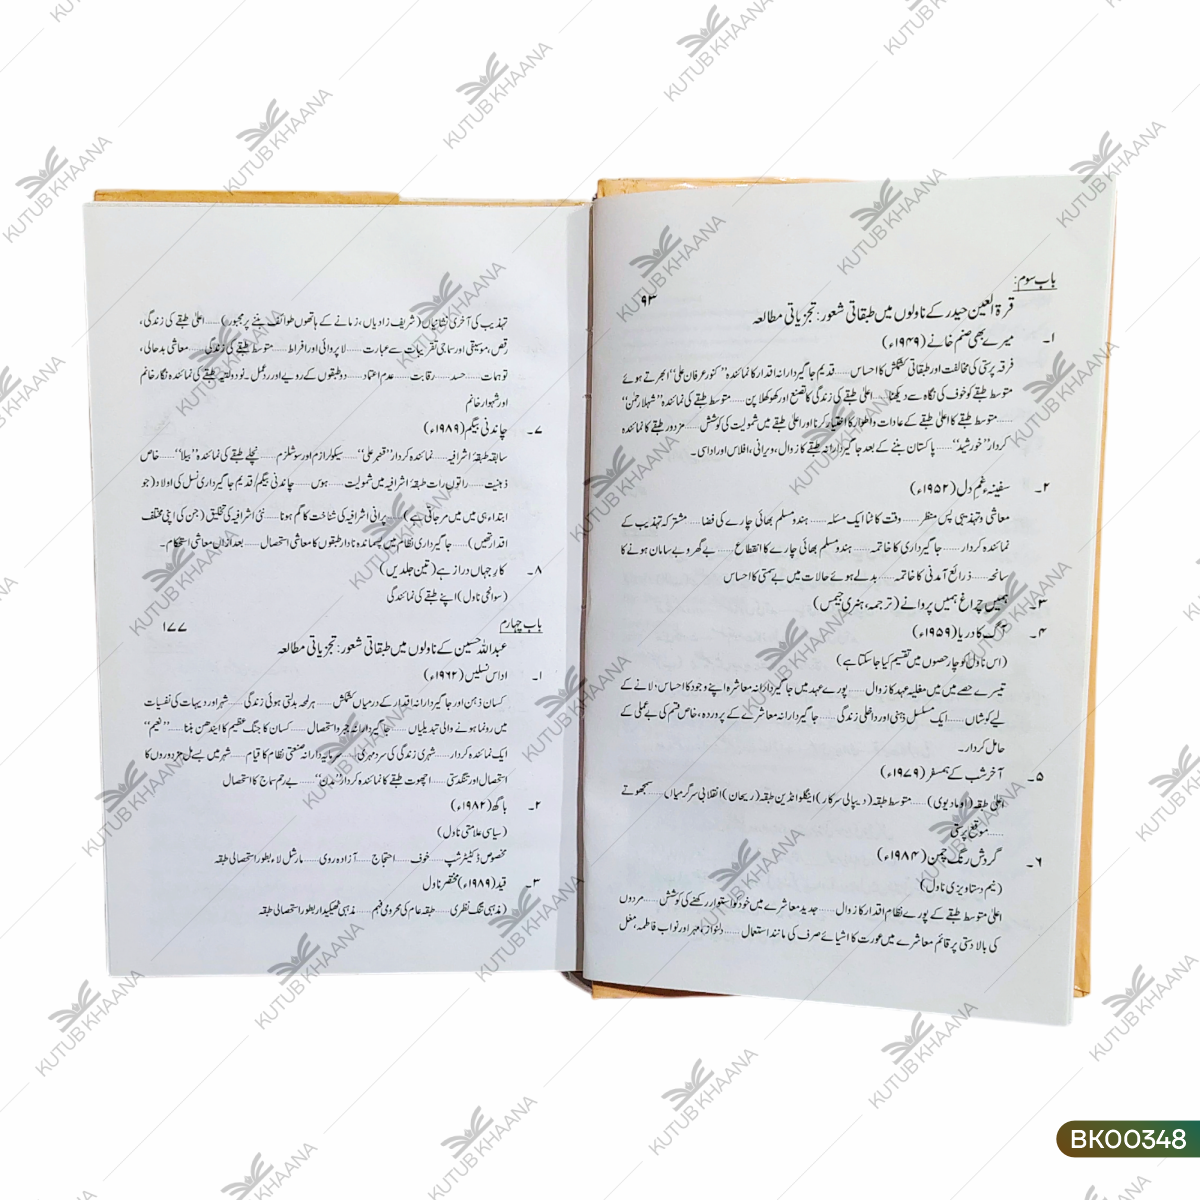 باب سوم:
قرۃ العین حیدر کے ناولوں میں طبقاتی شعور: تجزیاتی مطالعہ ۹۳
۱۔ میرے بھی صنم خانے (۱۹۴۹ء)
فرقہ پرستی کی مخالفت اور طبقاتی کشمکش کا احساس ...... قدیم جاگیردارانہ اقدار کا نمائندہ "کنور عرفان علی" ابھرتے ہوئے
متوسط طبقے کو خوف کی نگاہ سے دیکھنا ...... اعلیٰ طبقے کی زندگی کا تصنع اور کھوکھلا پن ...... متوسط طبقے کی نمائندہ "شہلا رحمٰن"
...... متوسط طبقے کا اعلیٰ طبقے کے عادات و اطوار کا اختیار کرنا اور اعلیٰ طبقے میں شمولیت کی کوشش ...... مزدور طبقے کا نمائندہ
کردار "خورشید" ...... پاکستان بننے کے بعد جاگیردارانہ طبقے کا زوال، ویرانی، افلاس اور اداسی۔
۲۔ سفینۂ غمِ دل (۱۹۵۲ء)
معاشی و تہذیبی پس منظر ...... وقت کا فنا ایک مسئلہ ...... ہندو مسلم بھائی چارے کی فضا ...... مشترکہ تہذیب کے
نمائندہ کردار ...... جاگیرداری کا خاتمہ ...... ہندو مسلم بھائی چارے کا انقطاع ...... بے گھر و بے سامان ہونے کا
سانحہ ...... ذرائع آمدنی کا خاتمہ ...... بدلے ہوئے حالات میں بے سمتی کا احساس
۳۔ ہمیں چراغ ہمیں پروانے (ترجمہ، ہنری جیمس)
۴۔ آگ کا دریا (۱۹۵۹ء)
(اس ناول کو چار حصوں میں تقسیم کیا جا سکتا ہے)
تیسرے حصے میں میں مغلیہ عہد کا زوال ...... پورے عہد میں جاگیردارانہ معاشرہ اپنے وجود کا احساس دلانے کے
لیے کوشاں ...... ایک مسلسل ذہنی اور داخلی زندگی ...... جاگیردارانہ معاشرے کے پروردہ، خاص قسم کی بے عملی کے
حامل کردار۔
۵۔ آخرِ شب کے ہمسفر (۱۹۷۹ء)
اعلیٰ طبقہ (اوما دیوی) ...... متوسط طبقہ (دیپالی سرکار) اینگلو انڈین طبقہ (ریحان) انقلابی سرگرمیاں ...... سمجھوتے
...... موقع پرستی
۶۔ گردشِ رنگِ چمن (۱۹۸۴ء)
(نیم دستاویزی ناول)
اعلیٰ متوسط طبقے کے پورے نظام اقدار کا زوال ...... جدید معاشرے میں خود کو استوار رکھنے کی کوشش ...... مردوں
کی بالا دستی پر قائم معاشرے میں عورت کا اشیائے صرف کی مانند استعمال ...... دلنواز، مہر اور نواب فاطمہ، مغل
تہذیب کی آخری نشانیاں (شریف زادیاں، زمانے کے ہاتھوں طوائف بننے پر مجبور) ...... اعلیٰ طبقے کی زندگی،
رقص، موسیقی اور سماجی تقریبات سے عبارت ...... لاپروائی اور افراط ...... متوسط طبقے کی زندگی ...... معاشی بدحالی،
توہمات ...... حسد ...... رقابت ...... عدم اعتماد ...... دو طبقوں کے رویے اور ردعمل۔ نو دولتیے طبقے کی نمائندہ نگار خانم
اور شہوار خانم
۷۔ چاندنی بیگم (۱۹۸۹ء)
سابقہ طبقۂ اشرافیہ ...... نمائندہ کردار "قنبر علی" ...... سیکولرازم اور سوشلزم ...... نچلے طبقے کی نمائندہ "بیلا" ...... خاص
ذہنیت ...... راتوں رات طبقۂ اشرافیہ میں شمولیت ...... ہوس ...... چاندنی بیگم/قدیم جاگیرداری نسل کی اولاد (جو
ابتداء ہی میں میں مر جاتی ہے) ...... پرانی اشرافیہ کی شناخت کا گم ہونا ...... نئی اشرافیہ کی تخلیق (جن کی اپنی مختلف
اقدار تھیں) ...... جاگیرداری نظام میں پسماندہ نادار طبقوں کا معاشی استحصال ...... بعد ازاں معاشی استحکام۔
۸۔ کارِ جہاں دراز ہے (تین جلدیں)
(سوانحی ناول) اپنے طبقے کی نمائندگی
باب چہارم ۱۷۷
عبداللہ حسین کے ناولوں میں طبقاتی شعور: تجزیاتی مطالعہ
۱۔ اداس نسلیں (۱۹۶۲ء)
کسان ذہن اور جاگیردارانہ اقدار کے درمیاں کشمکش ...... ہر لمحہ بدلتی ہوئی زندگی ...... شہر اور دیہات کی نفسیات
میں رونما ہونے والی تبدیلیاں ...... جاگیردارانہ جبر و استحصال ...... کسان کا جنگ عظیم کا ایندھن بننا ...... "نعیم"
ایک نمائندہ کردار ...... شہری زندگی کی سرد مہری ...... سرمایہ دارانہ صنعتی نظام کا قیام ...... شہر میں بسے مل مزدوروں کا
استحصال اور تنگدستی ...... اچھوت طبقے کا نمائندہ کردار "مدن" ...... بے رحم سماج کا استحصال
۲۔ باگھ (۱۹۸۲ء)
(سیاسی علامتی ناول)
مخصوص ڈکٹیٹر شپ ...... خوف ...... احتجاج ...... آزادہ روی ...... مارشل لاء بطور استحصالی طبقہ
۳۔ قید (۱۹۸۹ء) مختصر ناول
(مذہبی تنگ نظری ...... طبقہ عام کی محرومی فہم ...... مذہبی ٹھیکیدار بطور استحصالی طبقہ
KUTUB KHAANA
BK00348